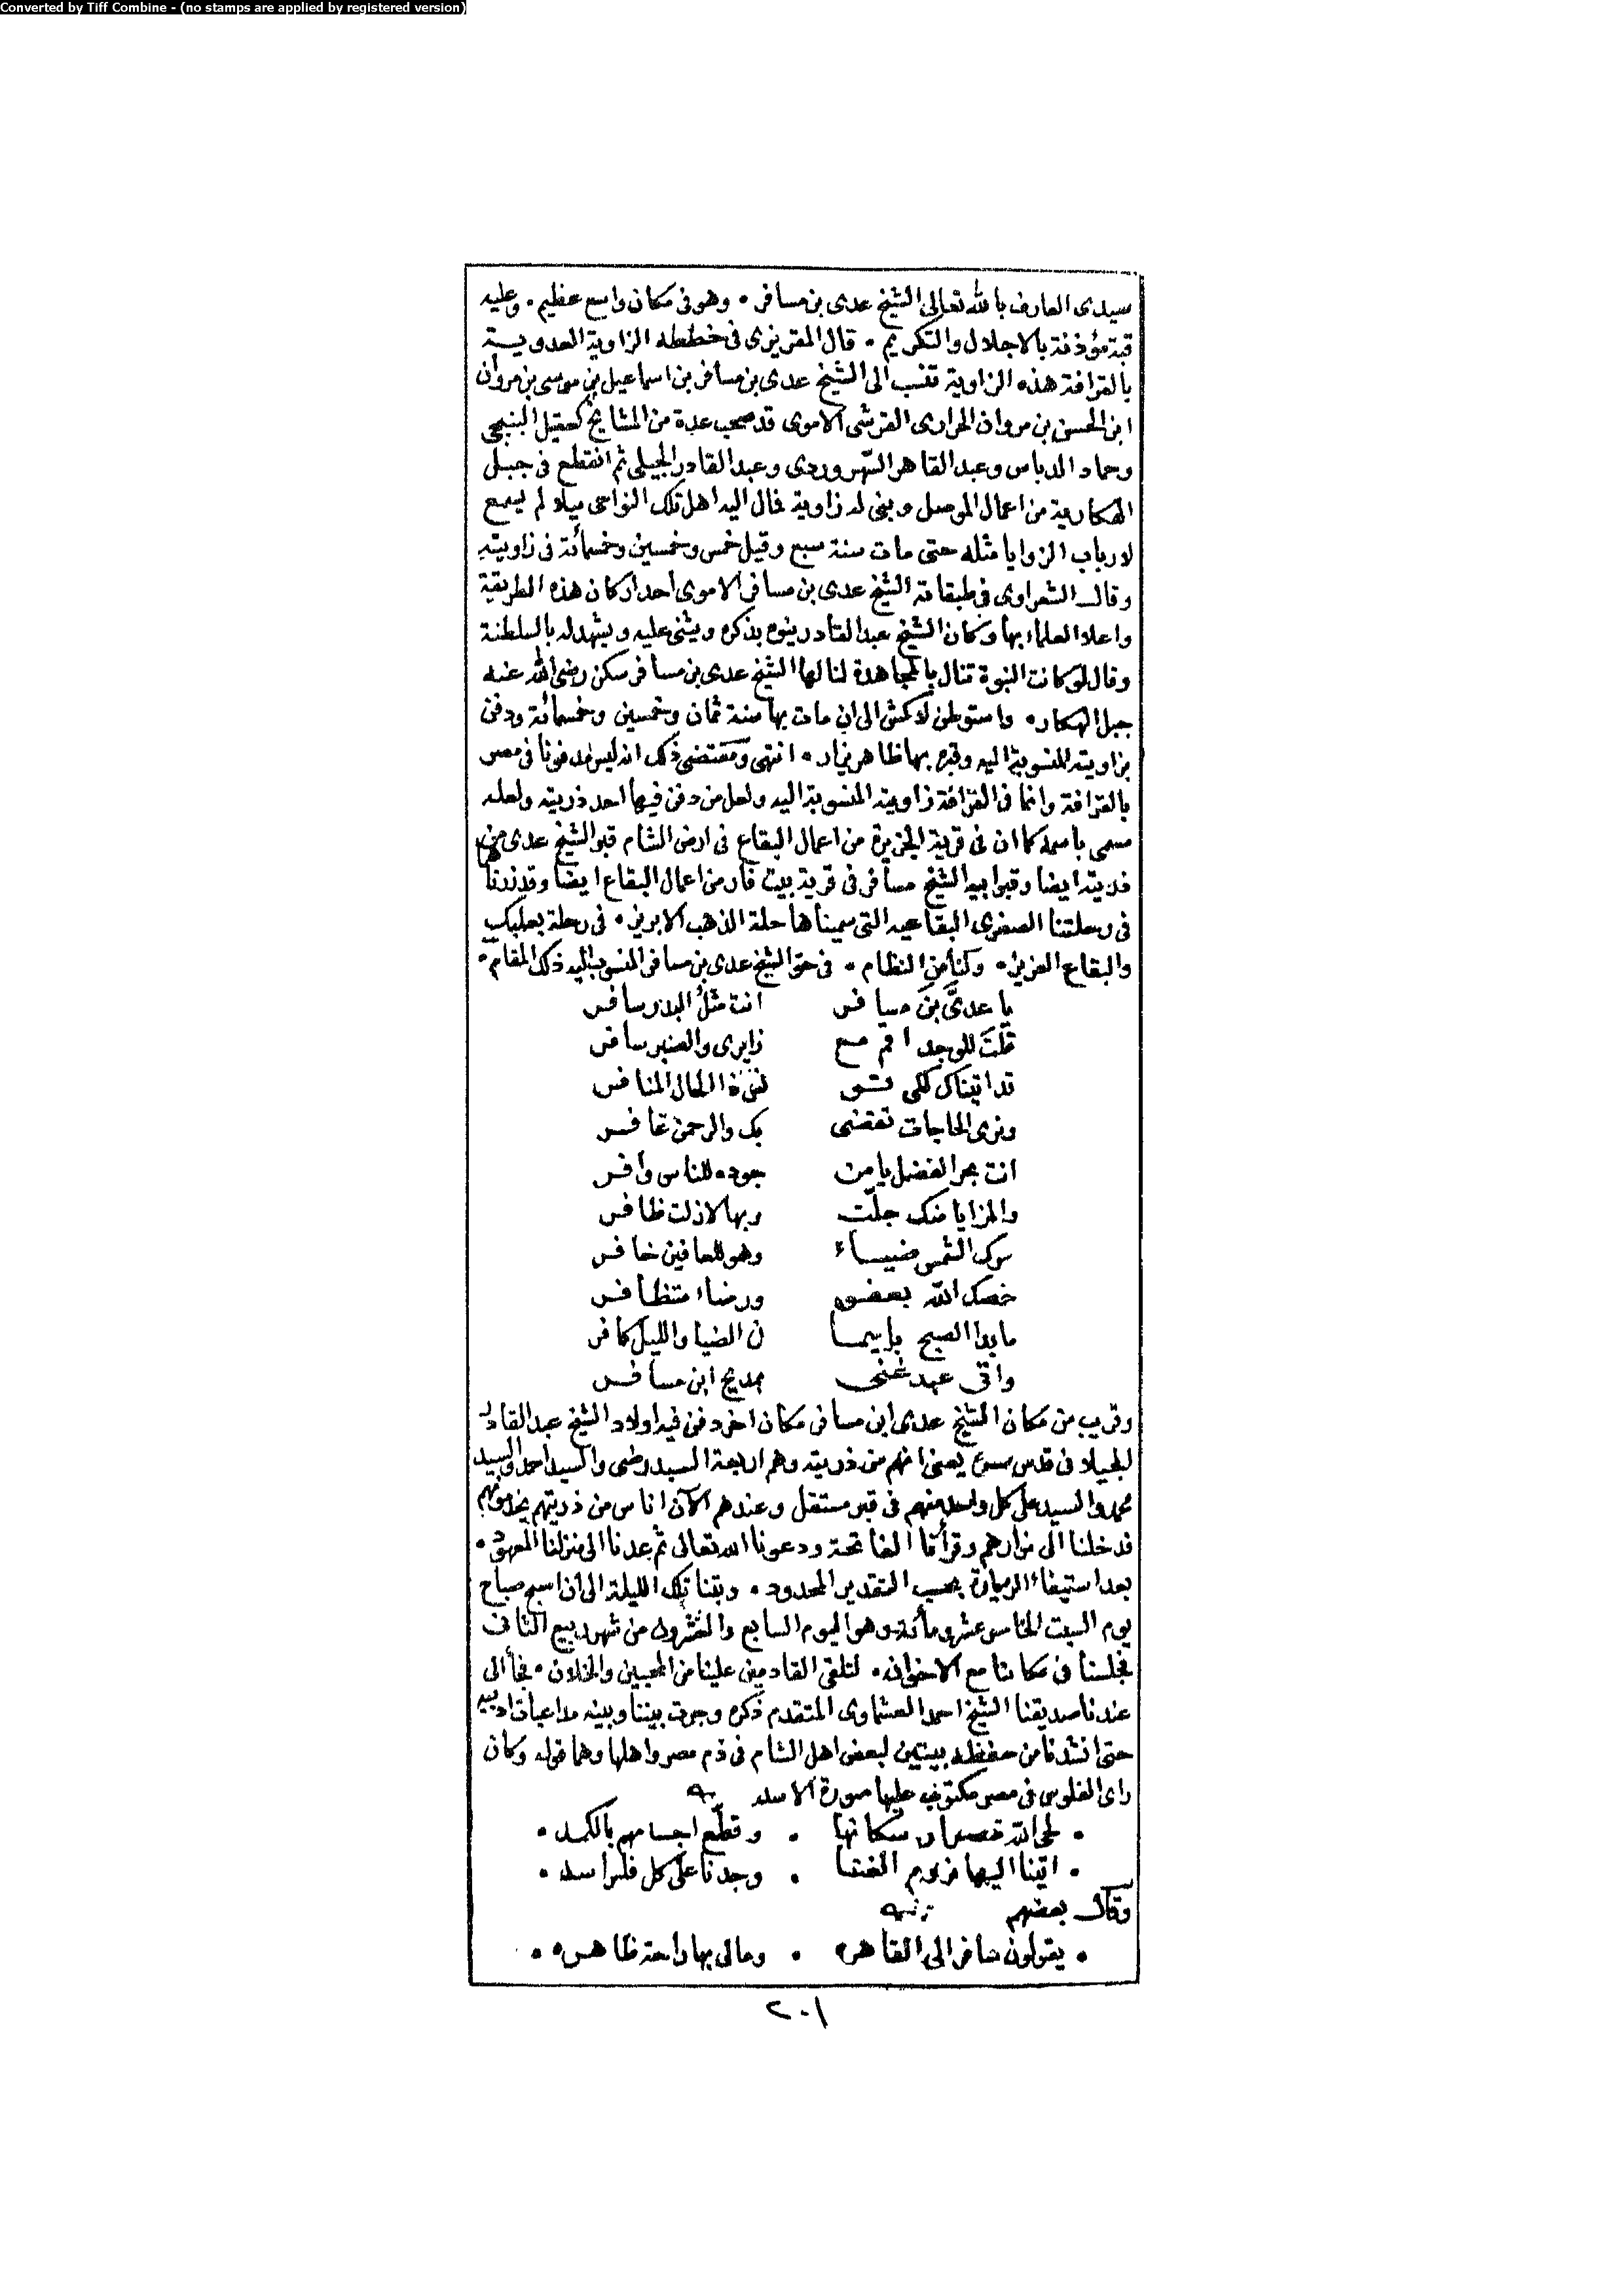 Converted by Tiff Combine - (no stamps are applied by registered version)
سيدى العارف بالله تعالى الشيخ عدى بن مسافر • وهو فى مكان واسع عظيم • وعليه
قبة مؤذنة بالاجلال والتكريم • قال المقريزى فى خططه الزاوية العدوية
بالقرافة هذه الزاوية تنسب الى الشيخ عدى بن مسافر بن اسماعيل بن موسى بن مروان
ابن الحسن بن مروان الحرارى القرشى الاموى قد صحب عدة من المشايخ كعقيل المنبجى
وحماد الدباس وعبد القاهر السهروردى وعبد القادر الجيلى ثم انقطع فى جبل
الهكارية من اعمال الموصل وبنى له زاوية فمال اليه اهل تلك النواحى ميلا لم يسمع
لارباب الزوايا مثله حتى مات سنة سبع وقيل خمس وخمسين وخمسمائة فى زاويته
وقال الشعراوى فى طبقاته الشيخ عدى بن مسافر الاموى احد اركان هذه الطريقة
واعلا العلماء بها وكان الشيخ عبد القادر ينوه بذكره ويثنى عليه ويشهد له بالسلطنة
وقال لو كانت النبوة تنال بالمجاهدة لنالها الشيخ عدى بن مسافر سكن رضى الله عنه
جبل الهكار • واستوطن لاكش الى ان مات بها سنة ثمان وخمسين وخمسمائة ودفن
بزاويته المنسوبة اليه وقبره بها ظاهر يزار • انتهى ومقتضى ذلك انه ليس مدفونا فى مصر
بالقرافة وانما فى القرافة زاويته المنسوبة اليه ولعل من دفن فيها احد ذريته ولعله
مسمى باسمه كما ان فى قرية الجزيرة من اعمال البقاع فى ارض الشام قبر الشيخ عدى من
ذريته ايضا وقبر ابيه الشيخ مسافر فى قرية بيت فار من اعمال البقاع ايضا وقد زرناهما
فى رحلتنا الصغرى البقاعيه التى سميناها حلة الذهب الابريز • فى رحلة بعلبك
والبقاع العزيز • وكنا من النظام • فى حق الشيخ عدى بن مسافر المنسوب اليه ذلك المقام •
يا عدىَّ بنَ مسافر انت مثلُ البدر سافر
قلتَ للوجد اقم مع زايرى والصبر سافر
قد اتيناك لكى تنو لنى الحال المنافر
ونرى الحاجات تقضى بك والرحمن غافر
انت بحر الفضل يا من جوده للناس وافر
والمزايا منك جلّت وبها لازلت ظافر
سوك الشمس ضياء وهو للعافين خافر
خصك الله بعفو ورضاء متظافر
ما بدا الصبح باسما ن الضيا والليل كافر
واتى عبد غنى بمديح ابن مسافر
وقريب من مكان الشيخ عدى ابن مسافر مكان اخر دفن فيه اولاد الشيخ عبد القادر
الجيلانى قدس سره يعنى انهم من ذريته وهم اربعة السيد رضى والسيد احمد والسيد
محمد والسيد على كل واحد منهم فى قبر مستقل وعندهم الآن اناس من ذريتهم يخدمونهم
فدخلنا الى مزارهم وقرأنا الفاتحة ودعونا الله تعالى ثم عدنا الى منزلنا المعهود •
بعد استيفاء الزيارة بحسب التقدير المحدود • وبتنا تلك الليلة الى ان اسبح صباح
يوم السبت الخامس عشر ومأة وهو اليوم السابع والعشرون من شهر ربيع الثانى
فجلسنا فى مكاننا مع الاخوان • لتلقى القادمين علينا من المحبين والخلان • فجأ الى
عندنا صديقنا الشيخ احمد العشماوى المتقدم ذكره وجرت بيننا وبينه مداعبات ادبيه
حتى انشدنا من حفظه بيتين لبعض اهل الشام فى ذم مصر واهلها وهما قوله وكان
راى الفلوس فى مصر مكتوب عليها صورة الاسد
• لحى الله مصرا وسكانها • وقطّع اجسامهم بالكمد •
• اتينا اليها نروم الغنا • وجدنا على كل فلس اسد •
وقال بعضهم
• يقولون سافر الى القاهره • ومالى بها راحة ظاهره •
٢٠١